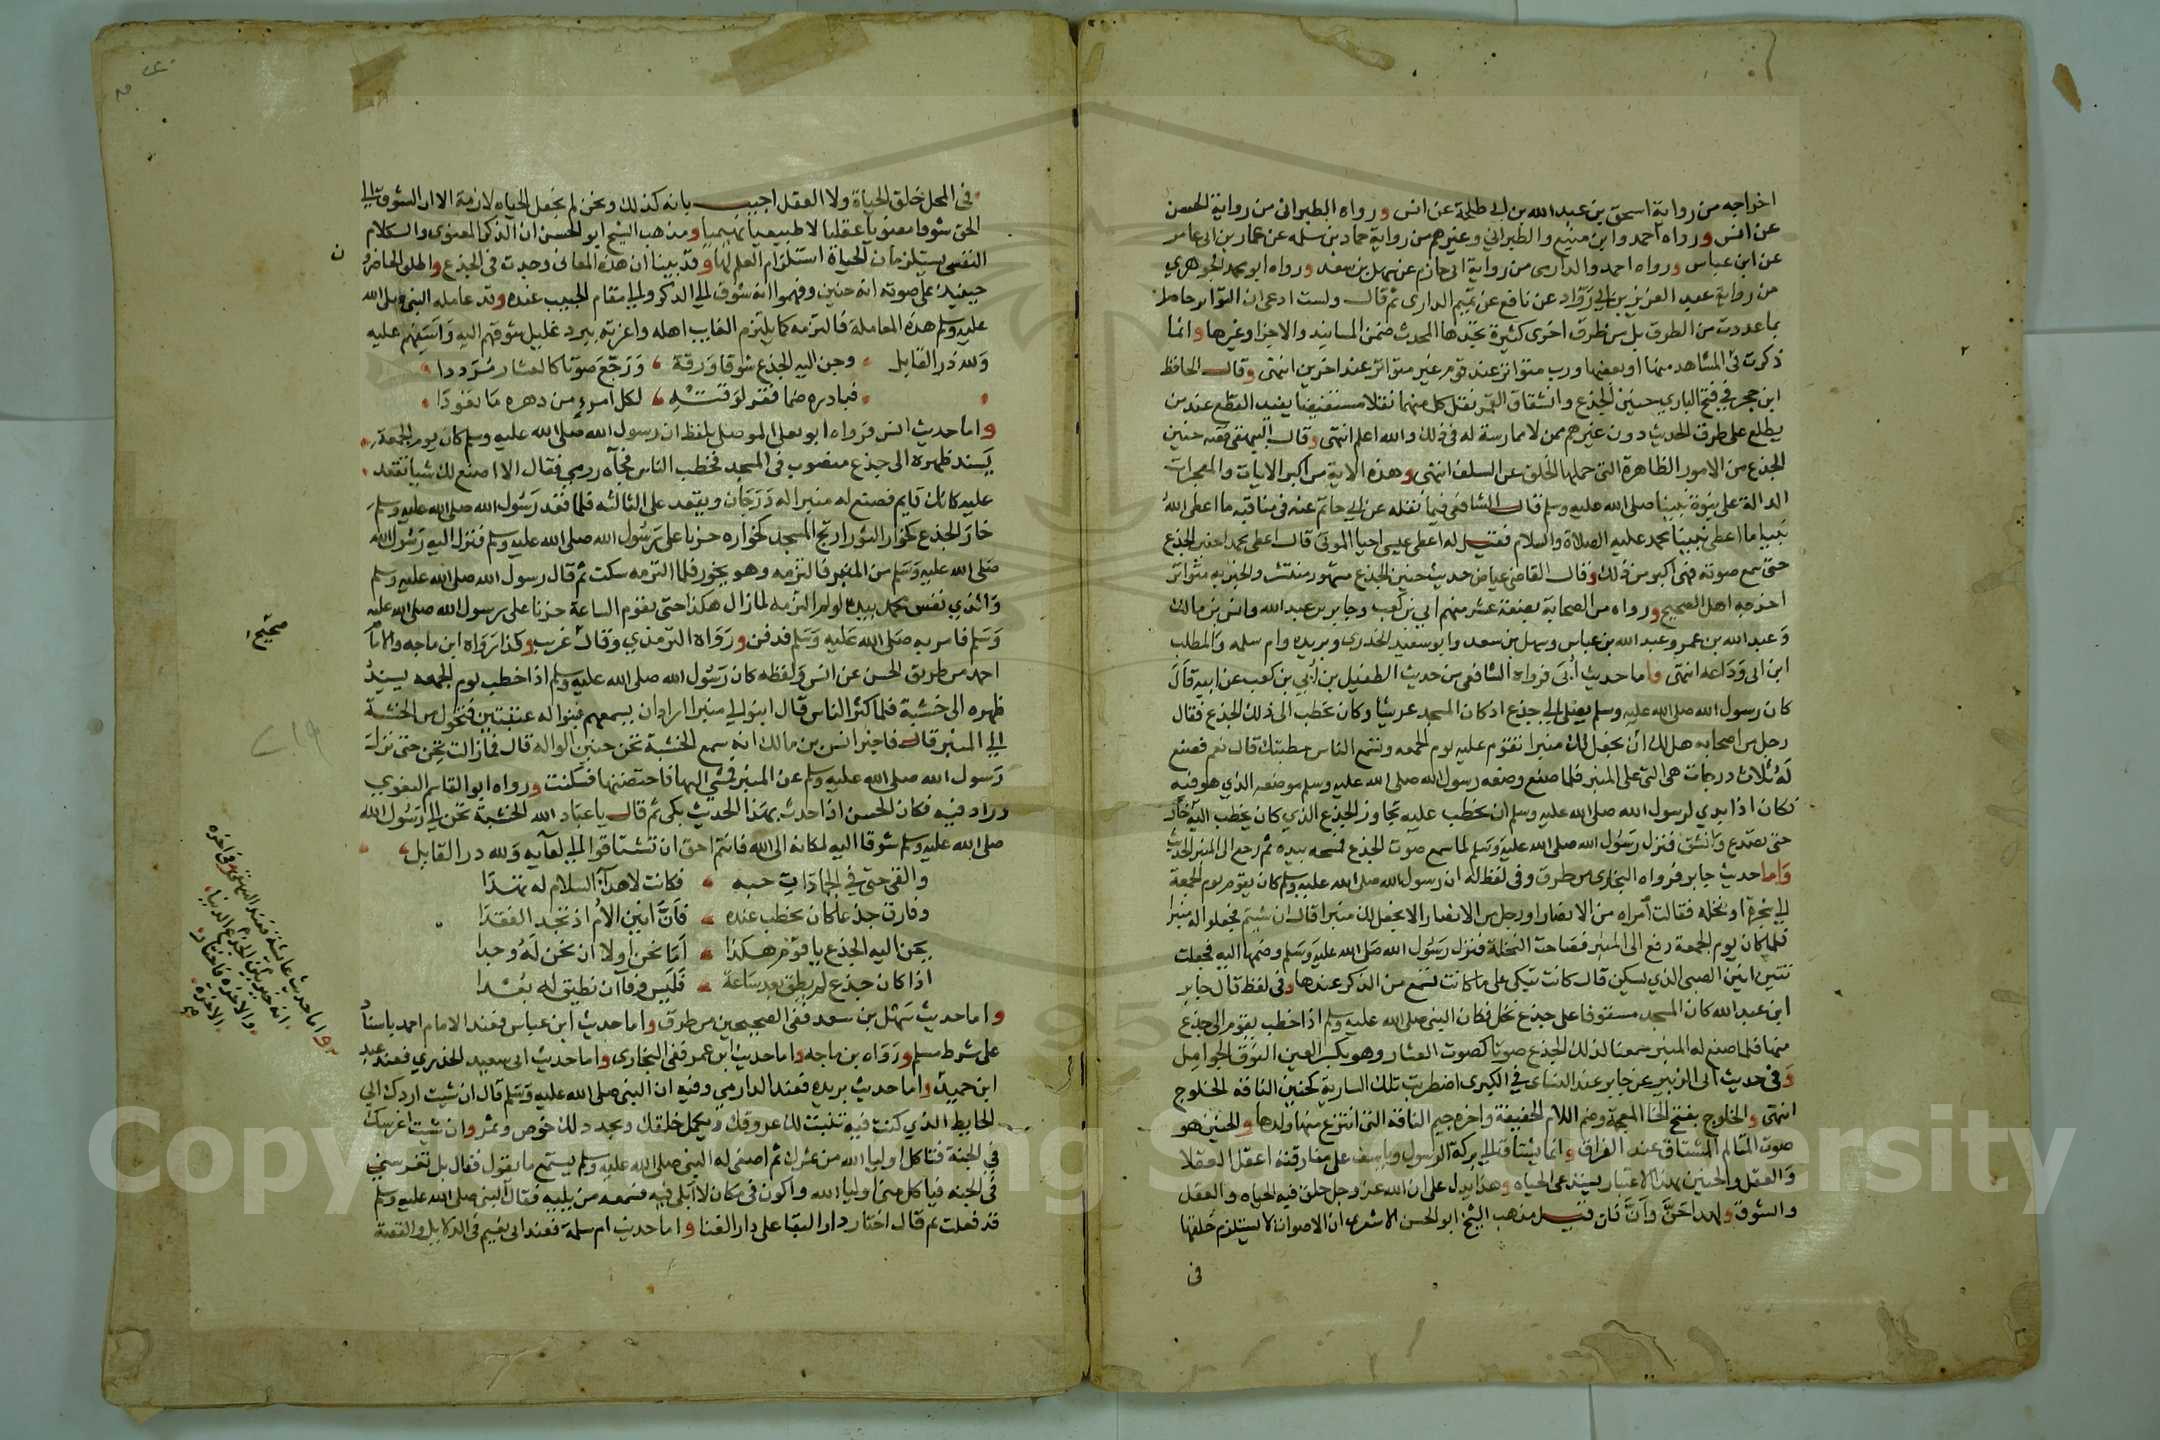 اخراجه من رواية اسحق بن عبد الله بن ابي طلحة عن انس ورواه الطبراني من رواية الحسن
عن انس ورواه احمد وابن منيع والطبراني وغيرهم من رواية حماد بن سلمه عن عمار بن ابي عامر
عن ابن عباس ورواه احمد والدارمى من رواية ابى حازم عن سهل بن سعد ورواه ابو محمد الجوهري
من رواية عبد العزيز بن ابي رواد عن نافع عن تميم الدارى ثم قال ولست ادعى ان التواتر حاصل
بما عددت من الطرق بل من طرق اخرى كثيرة يجدها المحدث ضمن المسانيد والاجزا وغيرها وانما
ذكرت فى المشاهد منها او بعضها ورب متواتر عند قوم غير متواتر عند اخرين انتهى وقال الحافظ
ابن حجر في فتح الباري حنين الجذع وانشقاق القمر نقل كل منهما نقلا مستفيضا يفيد القطع عند من
يطلع على طرق الحديث دون غيرهم ممن لا ممارسة له فى ذلك والله اعلم انتهى وقال البيهقى قصة حنين
الجذع من الامور الظاهرة التى حملها الخلق عن السلف انتهى وهذه الاية من اكبر الايات والمعجزات
الدالة على نبوة نبينا صلى الله عليه وسلم قال الشافعى فيما نقله عن ابي حاتم عنه فى مناقبه ما اعطى الله
نبيا ما اعطى نبينا محمد عليه الصلاة والسلام فقيل له اعطى عيسى احيا الموتى قال اعطى محمد احنين الجذع
حتى سمع صوته فهى اكبر من ذلك وقال القاضى عياض حديث حنين الجذع مشهور منتشر والخبر به متواتر
اخرجه اهل الصحيح ورواه من الصحابة بضعة عشر منهم ابى بن كعب وجابر بن عبد الله وانس بن مالك
وعبد الله بن عمر وعبد الله بن عباس وسهل بن سعد وابو سعيد الخدرى وبريده وام سلمه والمطلب
ابن ابى وداعه انتهى واما حديث ابى فرواه الشافعى من حديث الطفيل بن ابي بن كعب عن ابيه قال
كان رسول الله صلى الله عليه وسلم يصلى الى جذع اذ كان المسجد عريشا وكان يخطب الى ذلك الجذع فقال
رجل من اصحابه هل لك ان نجعل لك منبرا تقوم عليه يوم الجمعه وتسمع الناس خطبتك قال نعم فصنع
له ثلاث درجات هى التى على المنبر فلما صنع وضعه رسول الله صلى الله عليه وسلم موضعه الذي هو فيه
فكان اذا بدي لرسول الله صلى الله عليه وسلم ان يخطب عليه تجاوز الجذع الذي كان يخطب اليه خار
حتى تصدع وانشق فنزل رسول الله صلى الله عليه وسلم لما سمع صوت الجذع فمسحه بيده ثم رجع الى المنبر الحديث
واما حديث جابر فرواه البخارى من طرق وفى لفظ له ان رسول الله صلى الله عليه وسلم كان يقوم يوم الجمعة
الى شجرة او نخله فقالت امراه من الانصار او رجل من الانصار الا نجعل لك منبرا قال ان شيتم فجعلوا له منبرا
فلما كان يوم الجمعة رفع الى المنبر فصاحت النخلة فنزل رسول الله صلى الله عليه وسلم وضمها اليه فجعلت
تئن انين الصبى الذي يسكن قال كانت تبكى على ما كانت تسمع من الذكر عندها وفى لفظ قال جابر
ابن عبد الله كان المسجد مسقوفا على جذع نخل فكان النبى صلى الله عليه وسلم اذا خطب يقوم الى جذع
منها فلما صنع له المنبر سمعنا لذلك الجذع صوتا كصوت العشار وهو بكسر العين النوق الحوامل
وفى حديث ابى الزبير عن جابر عند النساى فى الكبرى اضطربت تلك السارية كحنين الناقه الخلوج
انتهى والخلوج بفتح الخا المعجمة وضم اللام الخفيفة واخره جيم الناقه التى انتزع منها ولدها والحنين هو
صوت المتالم المشتاق عند الفراق وانما يشتاق الى بركة الرسول وياسف على مفارقته اعقل العقلا
والعقل والحنين بهذا الاعتبار يستدعى الحياه وهذا يدل على ان الله عز وجل خلق فيه الحياه والعقل
والشوق ولهذا حن وان فان قيل مذهب الشيخ ابو الحسن الاشعرى ان الاصوات لا يستلزم خلقها
فى
فى المحل خلق الحياة ولا العقل اجيب بانه كذلك ونحن لم نجعل الحياه لازمة الا ان الشوق الى
الحق شوقا معنويا عقليا لا طبيعيا بهيميا ومذهب الشيخ ابو الحسن ان الذكر المعنوى والكلام
النفسى يستلزمان الحياة استلزام العلم لها وقد بينا ان هذه المعانى وجدت فى الجذع واطلق الحاضرون
حينيذ على صوته انه حنين وفهموا انه شوق الى الذكر والى مقام الحبيب عنده وقد عامله النبى صلى الله
عليه وسلم هذه المعاملة فالتزمه كما يلتزم الغايب اهله واعزته يبرد غليل شوقهم اليه واسفهم عليه
ولله در القايل وحن اليه الجذع شوقا ورقة ورجع صوتا كالعشار مرددا
فبادره ضما فقر لوقته لكل امرء من دهره ما تعودا
واما حديث انس فرواه ابو يعلى الموصلى بلفظ ان رسول الله صلى الله عليه وسلم كان يوم الجمعة
يسند ظهره الى جذع منصوب فى المسجد فخطب الناس فجاه رومي فقال الا اصنع لك شيا تقعد
عليه كانك قايم فصنع له منبرا له درجتان ويقعد على الثالثه فلما قعد رسول الله صلى الله عليه وسلم
خار الجذع كخوار الثور ارتج المسجد لخواره حزنا على رسول الله صلى الله عليه وسلم فنزل اليه رسول الله
صلى الله عليه وسلم من المنبر فالتزمه وهو يخور فلما التزمه سكت ثم قال رسول الله صلى الله عليه وسلم
والذي نفس محمد بيده لو لم التزمه لما زال هكذا حتى تقوم الساعة حزنا على رسول الله صلى الله عليه
وسلم فامر به صلى الله عليه وسلم فدفن ورواه الترمذي وقال غريب وكذا رواه ابن ماجه والامام
احمد من طريق الحسن عن انس ولفظه كان رسول الله صلى الله عليه وسلم اذا خطب يوم الجمعه يسند
ظهره الى خشبة فلما كثر الناس قال ابنوا لي منبرا اراد ان يسمعهم فبنوا له عتبتين فتحول من الخشبة
الى المنبر قال فاخبر انس بن مالك انه سمع الخشبة تحن حنين الواله قال فما زالت تحن حتى نزل
رسول الله صلى الله عليه وسلم عن المنبر فمشى اليها فاحتضنها فسكنت ورواه ابو القاسم البغوي
وزاد فيه فكان الحسن اذا حدث بهذا الحديث بكى ثم قال يا عباد الله الخشبة تحن الى رسول الله
صلى الله عليه وسلم شوقا اليه لمكانه الى الله فانتم احق ان تشتاقوا الى لقايه ولله در القايل
والقى حتى فى الجمادات حبه فكانت لاهداء السلام له تهدا
وفارق جذعا كان يخطب عنده فان انين الام اذ تجد الفقدا
يحن اليه الجذع يا قوم هكذا اما نحن اولا ان نحن له وجدا
اذا كان جذع لم يطق بعد ساعة فليس وفا ان نطيق له بعدا
واما حديث سهل بن سعد ففى الصحيحين من طرق واما حديث ابن عباس فعند الامام احمد باسناد
على شرط مسلم ورواه بن ماجه واما حديث ابن عمر ففى البخارى واما حديث ابى سعيد الخدري فعند عبد
ابن حميد واما حديث بريده فعند الدارمي وفيه ان النبى صلى الله عليه وسلم قال ان شيت اردك الى
الحايط الذي كنت فيه تنبت لك عروقك ويكمل خلقك ويجدد لك خوص وثمر وان شيت اغرسك
فى الجنة فتاكل اوليا الله من ثمرك ثم اصغى له النبى صلى الله عليه وسلم يستمع ما يقول فقال بل تغرسني
فى الجنه فياكل منى اوليا الله واكون فى مكان لا ابلى فيه فسمعه من يليه فقال النبى صلى الله عليه وسلم
قد فعلت ثم قال اختار دار البقا على دار الفنا واما حديث ام سلمة فعند ابى نعيم فى الدلايل والقصة
ن
صحيح
واما حديث عائشة فعند البيهقى وفى اخره
انه خير بين الدنيا
والاخرة فاختار
الاخرة
صح
Copyright © King Saud University